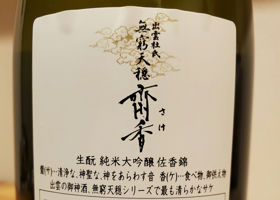 出雲杜氏
無窮天穏
齋香
さけ
生酛 純米大吟醸 佐香錦
齋(サ)…清浄な、神聖な、神をあらわす音 香(ケ)…食べ物、御供え物
出雲の御神酒、無窮天穏シリーズで最も清らかなサケ